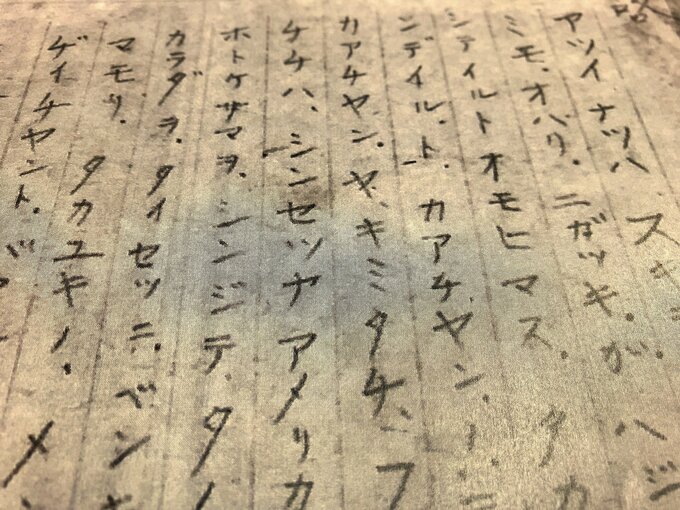 アツイ ナツハ スギ
ミモ、オバリ。ニガツキ。ガ ハジ
シテイルト オモヒ マス。 タカ
ンデイル。ト。カアチヤン、ノ、ニ
カアチヤン。ヤ、キミタチ、フ
チチハ、シンセツナ アメリカ
ホトケサマヲ、シンジテ、タノ
カラダヲ。タイセツニ。ベン
マモリ。 タカユキノ、 メ
ゲイチヤント。